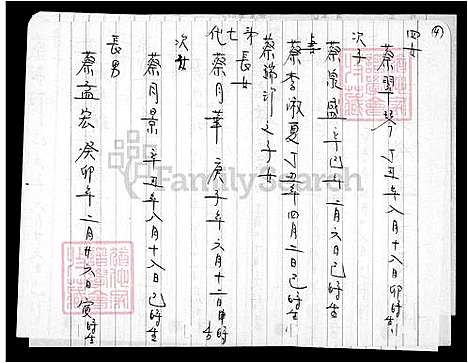 (4)
四女
蔡翠琴 丁丑年八月十八日卯時生
次子
蔡泉盛 辛巳年十二月六日巳時生
妻
蔡李淑夏 丁丑年四月二日巳時生
蔡瑞 之子女
第七代
長女
蔡月華 庚子年六月十二日申時生
次女
蔡月景 辛丑年八月十八日巳時生
長男
蔡孟宏 癸卯年二月廿六日寅時生
FamilySearch